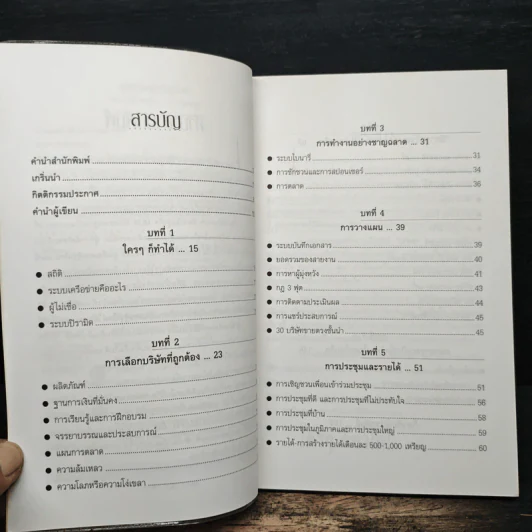 สารบัญ
คำนำสำนักพิมพ์
เกริ่นนำ
กิตติกรรมประกาศ
คำนำผู้เขียน
บทที่ 1
ใครๆ ก็ทำได้ ... 15
สถิติ
ระบบเครือข่ายคืออะไร
ผู้ไม่เชื่อ
ระบบปิรามิด
บทที่ 2
การเลือกบริษัทที่ถูกต้อง ... 23
ผลิตภัณฑ์
ฐานการเงินที่มั่นคง
การเรียนรู้และการฝึกอบรม
จรรยาบรรณและประสบการณ์
แผนการตลาด
ความล้มเหลว
ความโลภหรือความโง่เขลา
บทที่ 3
การทำงานอย่างชาญฉลาด ... 31
ระบบไบนารี่ 31
การชักชวนและการสปอนเซอร์ 34
การตลาด 36
บทที่ 4
การวางแผน ... 39
ระบบบันทึกเอกสาร 39
ยอดรวมของสายงาน 40
การหาผู้มุ่งหวัง 41
กฎ 3 ฟุต 43
การติดตามประเมินผล 44
การแชร์ประสบการณ์ 45
30 บริษัทขายตรงชั้นนำ 45
บทที่ 5
การประชุมและรายได้ ... 51
การเชิญชวนเพื่อนเข้าร่วมประชุม 51
การประชุมที่ดี และการประชุมที่ไม่ประทับใจ 56
การประชุมที่บ้าน 58
การประชุมในภูมิภาคและการประชุมใหญ่ 59
รายได้-การสร้างรายได้เดือนละ 500-1,000 เหรียญ 60